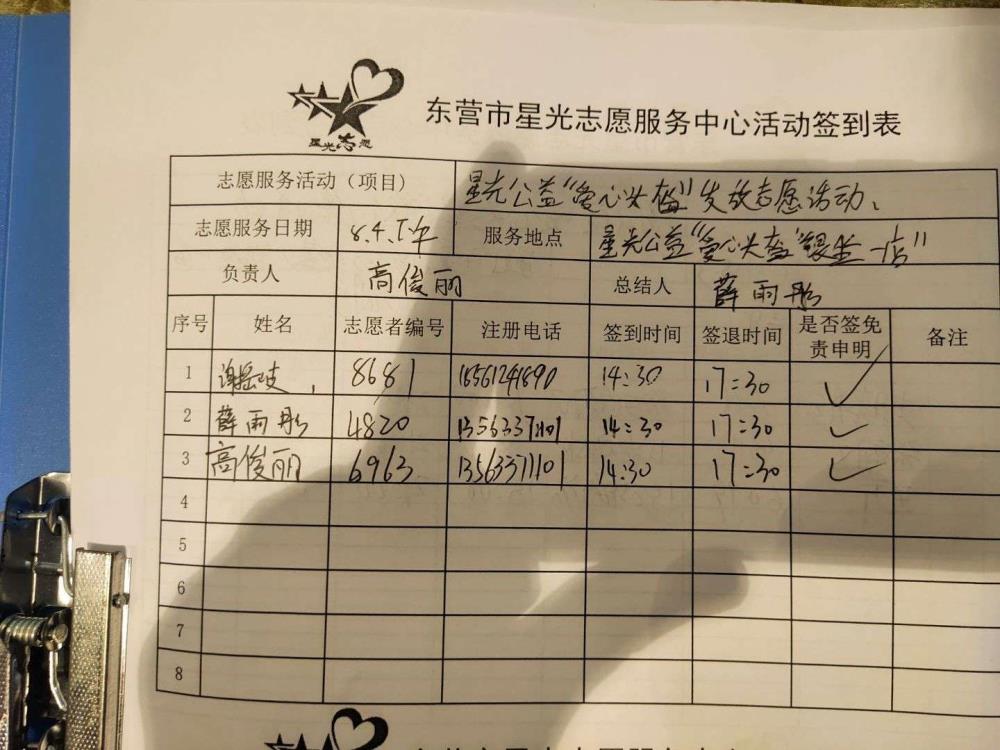 星光志愿
东营市星光志愿服务中心活动签到表
志愿服务活动（项目） 星光公益“爱心头盔”发放志愿活动、
志愿服务日期 8.4.下午 服务地点 星光公益“爱心头盔”银座一店”
负责人 高俊丽 总结人 薛雨彤
序号 姓名 志愿者编号 注册电话 签到时间 签退时间 是否签免责申明 备注
1 8681 14:30 17:30 ✓
2 薛雨彤 4820 14:30 17:30 ✓
3 高俊丽 6963 13563371101 14:30 17:30 ✓
4
5
6
7
8